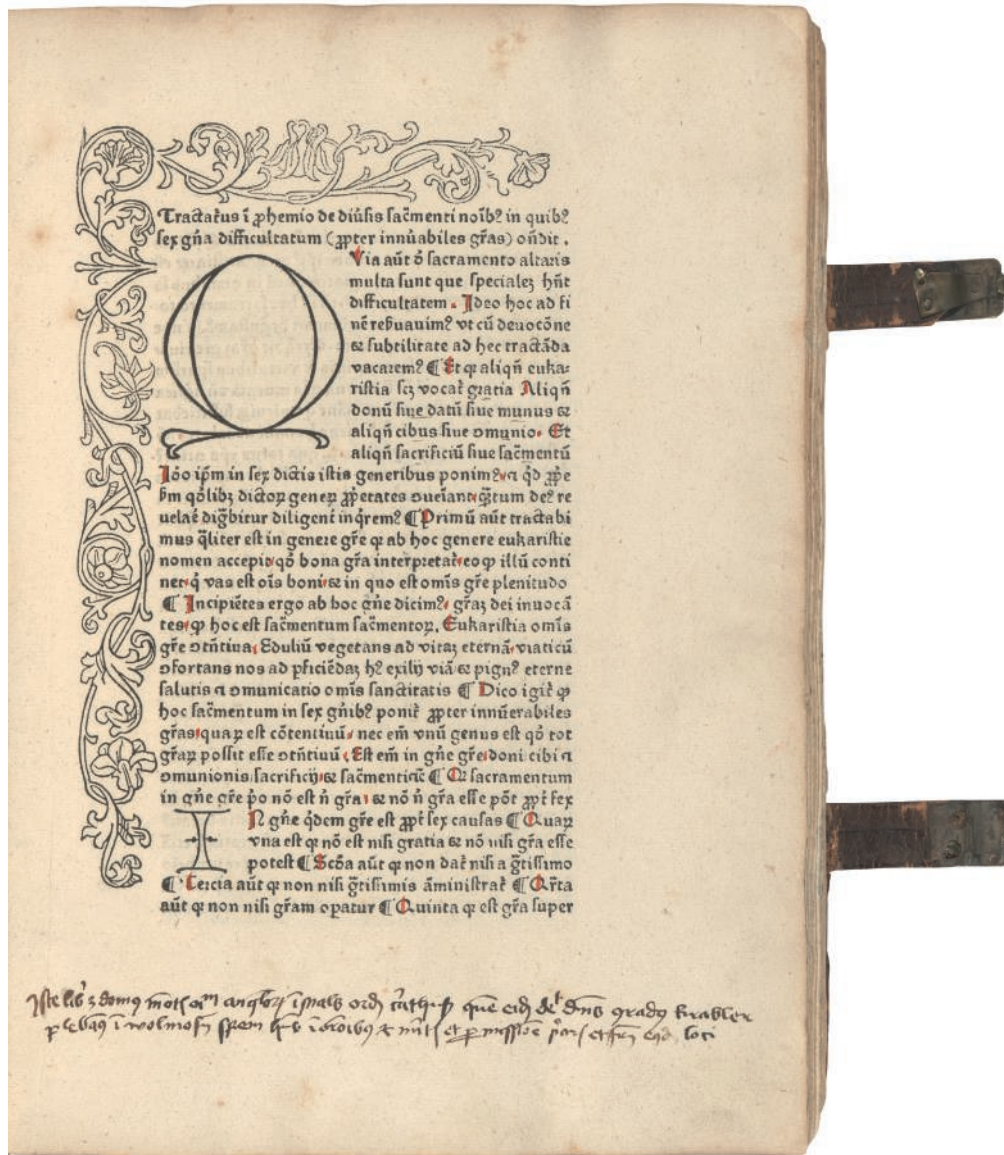 Tractatus ī ꝓhemio de diūſis ſac̄menti noīb⁹ in quib⁹
ſex gn̄a difficultatum (ꝓpter innūabiles gr̄as) on̄dit .
Via aūt ꝺ ſacramento altaris
multa ſunt que ſpecialeꝫ hn̄t
difficultatem . Ideo hoc ad fi
nē reẜuauim⁹ vt cū deuocōne
⁊ ſubtilitate ad hec tractāda
vacarem⁹ ¶ Et qꝛ aliqn̄ euka⸗
riſtia ſcꝫ vocat̄ gratia Aliqn̄
donū ſiue datū ſiue munus ⁊
aliqn̄ cibus ſiue ↄmunio . Et
aliqn̄ ſacrificiū ſiue ſac̄mentū
Iōo ip̄m in ſex dictis iſtis generibus ponim⁹ ⁊ qd̄ ꝓpe
ẜm qōlibꝫ dictoꝝ geneꝝ ꝓp̄etates ↄueīant de⁹ re
uelāē dig̅bitur diligent̄ inq̄rem⁹ ¶ Primū aūt tractabi
mus q̄liter est in genere gr̄e qꝛ ab hoc genere eukariſtie
nomen accepit qō bona gr̄a interpretat̄ eo ꝙ illū conti
net q̄ vas eſt oīs boni ⁊ in quo eſt omīs gr̄e plenitudo
¶ Incipiētes ergo ab hoc gn̄e dicim⁹ gr̄aꝫ dei inuocā
tes ꝙ hoc eſt ſac̄mentum ſac̄mentoꝝ. Eukariſtia omīs
gr̄e ↄtn̄tiua Eduliū vegetans ad vitaꝫ eternā viaticū
ↄfortans nos ad ꝑficiēdaꝫ h⁹ exilij viā ⁊ pign⁹ eterne
ſalutis ⁊ ↄmunicatio omīs ſanctitatis ¶ Dico igit̄ ꝙ
hoc ſac̄mentum in ſex gn̄ib⁹ ponit̄ ꝓpter innūerabiles
gr̄as quaꝝ eſt cōtentiuū nec em̄ vnū genus eſt qō tot
gr̄aꝝ poſſit eſſe ↄtn̄tiuū Eſt em̄ in gn̄e gr̄e doni cibi ⁊
ↄmunionis ſacrificij ⁊ ſac̄menti ¶ Qꝛ ſacramentum
in gn̄e gr̄e p̊o nō eſt n̄ gr̄a ⁊ nō n̄ gr̄a eſſe pōt ꝓpt̄ ſex
IN gn̄e qͥdem gr̄e eſt ꝓpt̄ ſex cauſas ¶ Quaꝝ
vna eſt qꝛ nō eſt niſi gratia ⁊ nō niſi gr̄a eſſe
poteſt ¶ Scōa aūt qꝛ non dat̄ niſi a g̅tiſſimo
¶ Tercia aūt qꝛ non niſi g̅tiſſimis āminiſtrat̄ ¶ Qr̄ta
aūt qꝛ non niſi gr̄am oꝑatur ¶ Quinta qꝛ eſt gr̄a ſuper